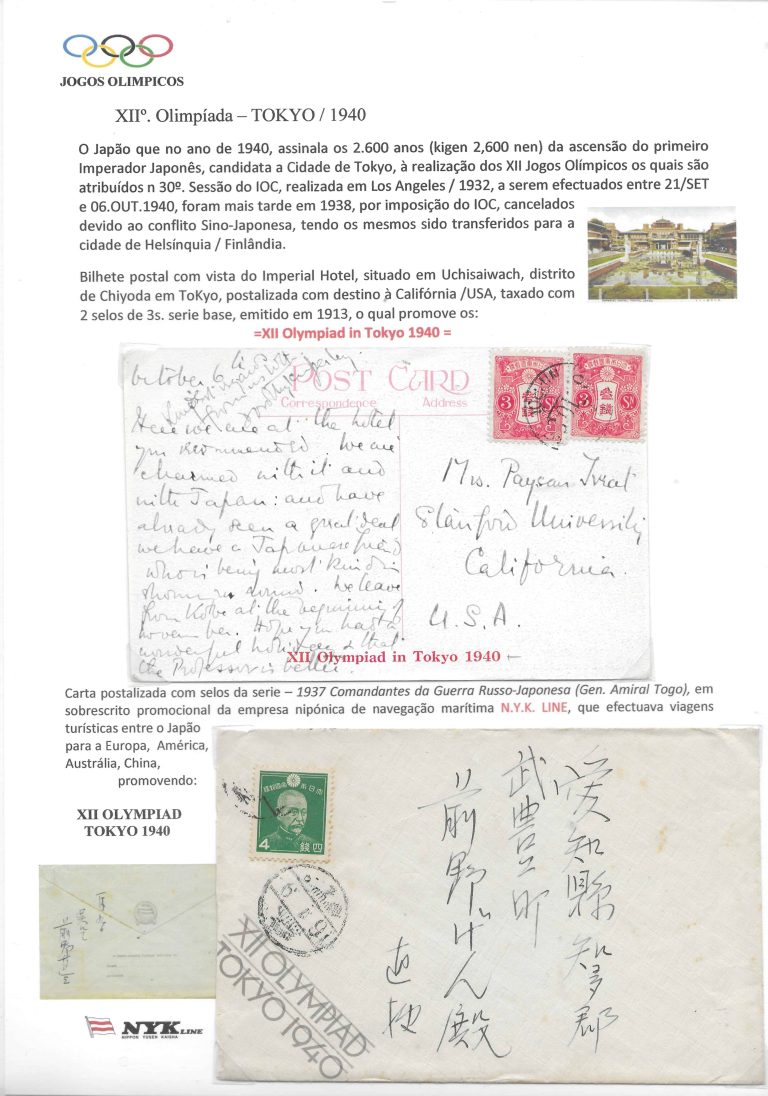 JOGOS OLIMPICOS
XIIº. Olimpíada – TOKYO / 1940
O Japão que no ano de 1940, assinala os 2.600 anos (kigen 2,600 nen) da ascensão do primeiro
Imperador Japonês, candidata a Cidade de Tokyo, à realização dos XII Jogos Olímpicos os quais são
atribuídos n 30º. Sessão do IOC, realizada em Los Angeles / 1932, a serem efectuados entre 21/SET
e 06.OUT.1940, foram mais tarde em 1938, por imposição do IOC, cancelados
devido ao conflito Sino-Japonesa, tendo os mesmos sido transferidos para a
cidade de Helsínquia / Finlândia.
Bilhete postal com vista do Imperial Hotel, situado em Uchisaiwach, distrito
de Chiyoda em ToKyo, postalizada com destino à Califórnia /USA, taxado com
2 selos de 3s. serie base, emitido em 1913, o qual promove os:
=XII Olympiad in Tokyo 1940 =
POST CARD
Correspondence Address
3 Sn 3 Sn
October 6
Here we are at the hotel
you recommended. We are
charmed with it and
with Japan: and have
already seen a great deal
we have a Japanese friend
who is being most kind in
showing us round. We leave
from Kobe at the beginning of
november. Hope you had a
wonderful holiday & that
the Professor is better.
Mrs. Payson
Stanford University
California.
U.S.A.
XII Olympiad in Tokyo 1940
Carta postalizada com selos da serie – 1937 Comandantes da Guerra Russo-Japonesa (Gen. Amiral Togo), em
sobrescrito promocional da empresa nipónica de navegação marítima N.Y.K. LINE, que efectuava viagens
turísticas entre o Japão
para a Europa, América,
Austrália, China,
promovendo:
XII OLYMPIAD
TOKYO 1940
4 銭四
愛知縣知多郡
武豊町
前野げん殿
XII OLYMPIAD
TOKYO 1940
NYK LINE
NIPPON YUSEN KAISHA